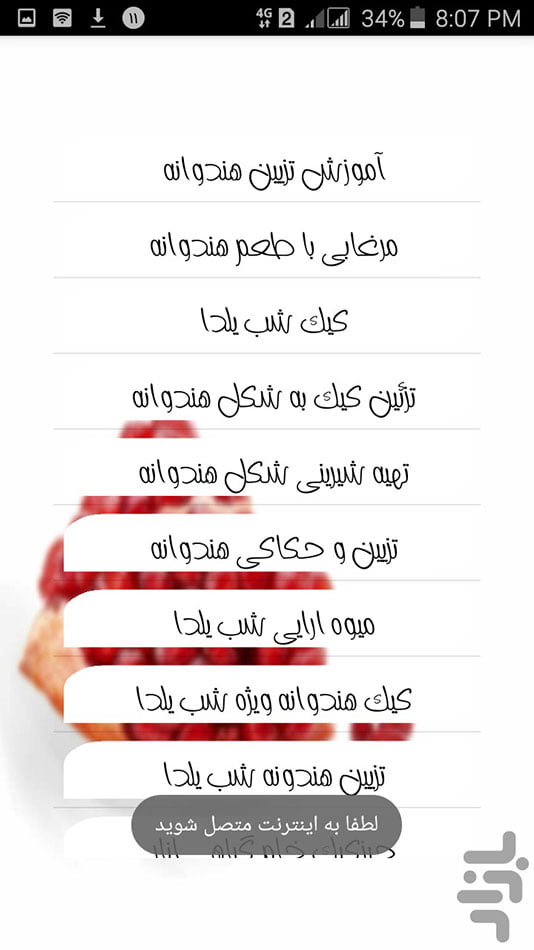 ۱۱ 4G 2 34% 8:07 PM
آموزش تزیین هندوانه
مرغابی با طعم هندوانه
کیک شب یلدا
تزئین کیک به شکل هندوانه
تهیه شیرینی شکل هندوانه
تزیین و حکاکی هندوانه
میوه ارایی شب یلدا
کیک هندوانه ویژه شب یلدا
تزیین هندونه شب یلدا
لطفا به اینترنت متصل شوید
بازار